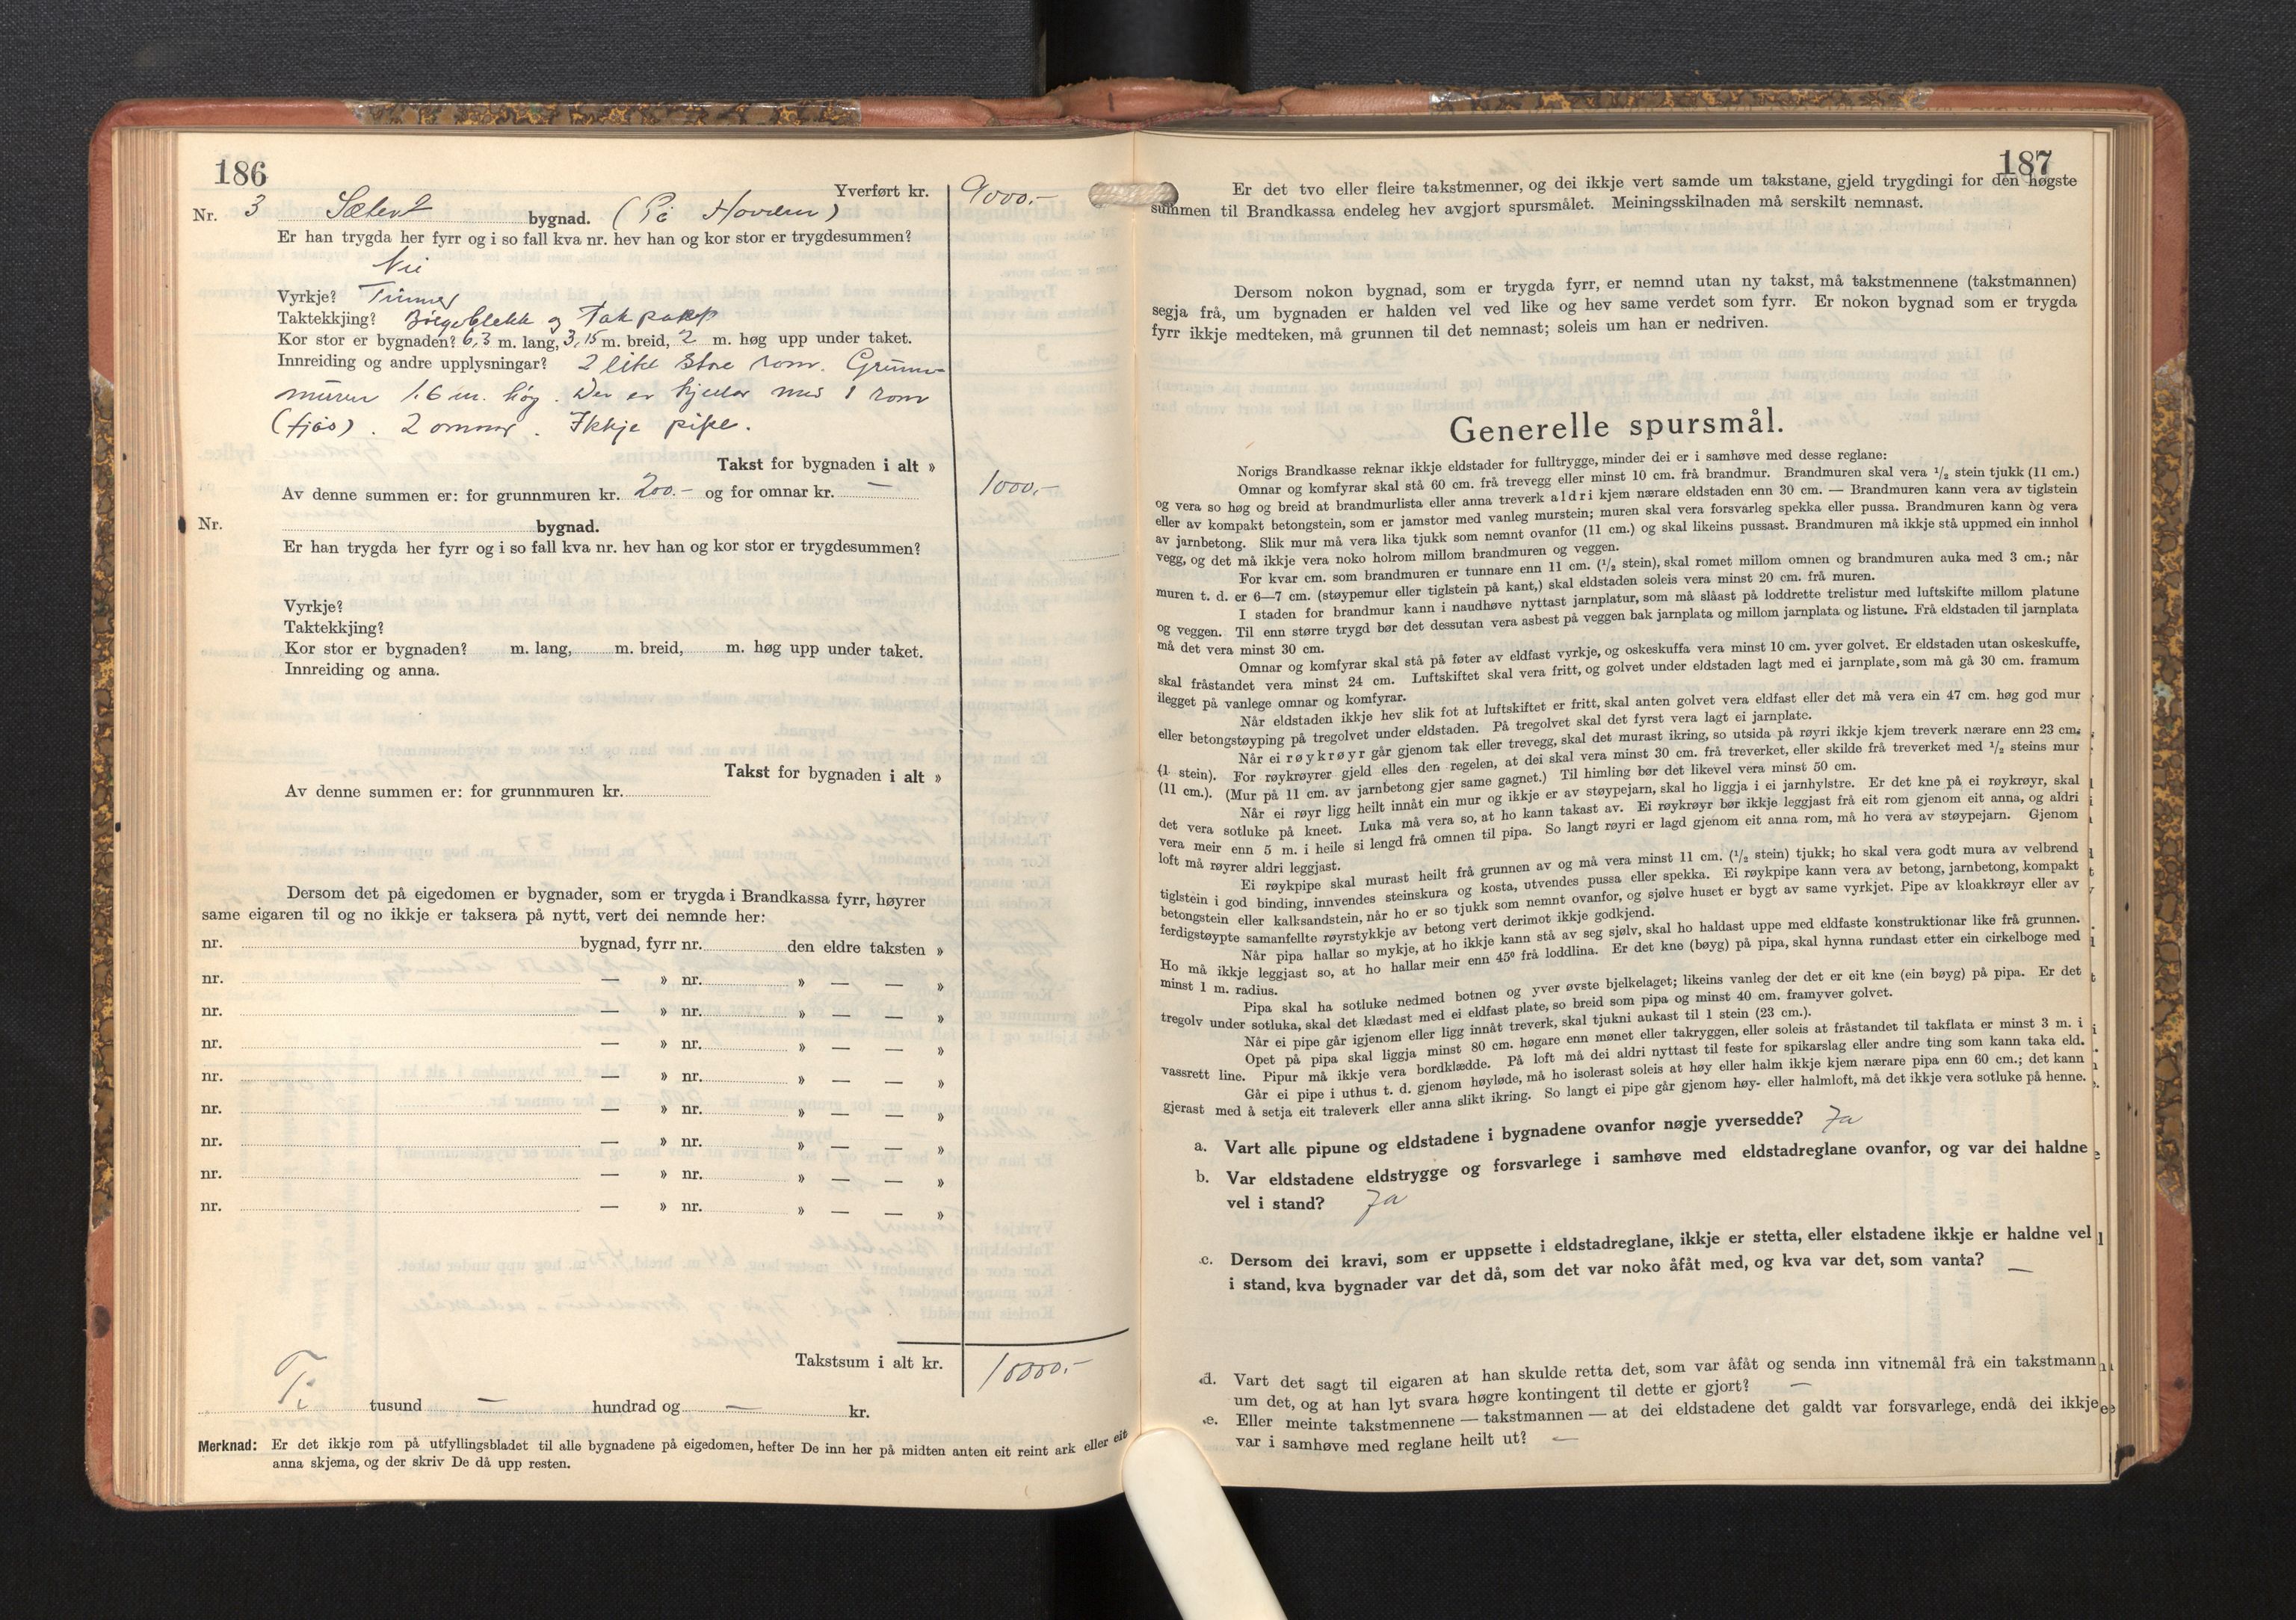 186
Yverført kr. 9000.-
Nr. 3 Sælent bygnad. (På Hovden)
Er han trygda her fyrr og i so fall kva nr. hev han og kor stor er trygdesummen?
Nei
Vyrkje? Timmer
Taktekkjing? Bølgeblekk og Takpapp
Kor stor er bygnaden? 6,3 m. lang, 3,15 m. breid, 2 m. høg upp under taket.
Innreiding og andre upplysningar? 2 like store rom. Grunn-
muren 1.6 m. høg. Der er kjellar med 1 rom
(fjøs). 2 omnar. Ikkje pipe.
Takst for bygnaden i alt »
Av denne summen er: for grunnmuren kr. 200.- og for omnar kr. — 1000.-
Nr. bygnad.
Er han trygda her fyrr og i so fall kva nr. hev han og kor stor er trygdesummen?
Vyrkje?
Taktekkjing?
Kor stor er bygnaden? m. lang, m. breid, m. høg upp under taket.
Innreiding og anna.
Takst for bygnaden i alt »
Av denne summen er: for grunnmuren kr.
Dersom det på eigedomen er bygnader, som er trygda i Brandkassa fyrr, høyrer
same eigaren til og no ikkje er taksera på nytt, vert dei nemnde her:
nr. bygnad, fyrr nr. den eldre taksten »
nr. — » nr. » — — »
nr. — » nr. » — — »
nr. — » nr. » — — »
nr. — » nr. » — — »
nr. — » nr. » — — »
nr. — » nr. » — — »
nr. — » nr. » — — »
nr. — » nr. » — — »
Takstsum i alt kr. 10000.-
Ti tusund — hundrad og — kr.
Merknad: Er det ikkje rom på utfyllingsbladet til alle bygnadene på eigedomen, hefter De inn her på midten anten eit reint ark eller eit
anna skjema, og der skriv De då upp resten.
187
Er det tvo eller fleire takstmenner, og dei ikkje vert samde um takstane, gjeld trygdingi for den høgste
summen til Brandkassa endeleg hev avgjort spursmålet. Meiningsskilnaden må serskilt nemnast.
Dersom nokon bygnad, som er trygda fyrr, er nemnd utan ny takst, må takstmennene (takstmannen)
segja frå, um bygnaden er halden vel ved like og hev same verdet som fyrr. Er nokon bygnad som er trygda
fyrr ikkje medteken, må grunnen til det nemnast; soleis um han er nedriven.
Generelle spursmål.
Norigs Brandkasse reknar ikkje eldstader for fulltrygge, minder dei er i samhøve med desse reglane:
Omnar og komfyrar skal stå 60 cm. frå trevegg eller minst 10 cm. frå brandmur. Brandmuren skal vera 1/2 stein tjukk (11 cm.)
og vera so høg og breid at brandmurlista eller anna treverk aldri kjem nærare eldstaden enn 30 cm. — Brandmuren kann vera av tiglstein
eller av kompakt betongstein, som er jamstor med vanleg murstein; muren skal vera forsvarleg spekka eller pussa. Brandmuren kann òg vera
av jarnbetong. Slik mur må vera lika tjukk som nemnt ovanfor (11 cm.) og skal likeins pussast. Brandmuren må ikkje stå uppmed ein innhol
vegg, og det må ikkje vera noko holrom millom brandmuren og veggen.
For kvar cm. som brandmuren er tunnare enn 11 cm. (1/2 stein), skal romet millom omnen og brandmuren auka med 3 cm.; når
muren t. d. er 6—7 cm. (støypemur eller tiglstein på kant,) skal eldstaden soleis vera minst 20 cm. frå muren.
I staden for brandmur kann i naudhøve nyttast jarnplatur, som må slåast på loddrette trelistur med luftskifte millom platune
og veggen. Til enn større trygd bør det dessutan vera asbest på veggen bak jarnplata og millom jarnplata og listune. Frå eldstaden til jarnplata
må det vera minst 30 cm.
Omnar og komfyrar skal stå på føter av eldfast vyrkje, og oskeskuffa vera minst 10 cm. yver golvet. Er eldstaden utan oskeskuffe,
skal fråstandet vera minst 24 cm. Luftskiftet skal vera fritt, og golvet under eldstaden lagt med ei jarnplate, som må gå 30 cm. framum
ilegget på vanlege omnar og komfyrar.
Når eldstaden ikkje hev slik fot at luftskiftet er fritt, skal anten golvet vera eldfast eller det må vera ein 47 cm. høg god mur
eller betongstøyping på tregolvet under eldstaden. På tregolvet skal det fyrst vera lagt ei jarnplate.
Når ei røykrøyr går gjenom tak eller trevegg, skal det murast ikring, so utsida på røyri ikkje kjem treverk nærare enn 23 cm.
(1 stein). For røykrøyrer gjeld elles den regelen, at dei skal vera minst 30 cm. frå treverket, eller skilde frå treverket med 1/2 steins mur
(11 cm.). (Mur på 11 cm. av jarnbetong gjer same gagnet.) Til himling bør det likevel vera minst 50 cm.
Når ei røyr ligg heilt innåt ein mur og ikkje er av støypejarn, skal ho liggja i ei jarnhylstre. Er det kne på ei røykrøyr, skal
det vera sotluke på kneet. Luka må vera so, at ho kann takast av. Ei røykrøyr bør ikkje leggjast frå eit rom gjenom eit anna, og aldri
vera meir enn 5 m. i heile si lengd frå omnen til pipa. So langt røyri er lagd gjenom eit anna rom, må ho vera av støypejarn. Gjenom
loft må røyrer aldri leggjast.
Ei røykpipe skal murast heilt frå grunnen av og må vera minst 11 cm. (1/2 stein) tjukk; ho skal vera godt mura av velbrend
tiglstein i god binding, innvendes steinskura og kosta, utvendes pussa eller spekka. Ei røykpipe kann vera av betong, jarnbetong, kompakt
betongstein eller kalksandstein, når ho er so tjukk som nemnt ovanfor, og sjølve huset er bygt av same vyrkjet. Pipe av kloakkrøyr eller av
ferdigstøypte samanfellte røyrstykkje av betong vert derimot ikkje godkjend.
Når pipa hallar so mykje, at ho ikkje kann stå av seg sjølv, skal ho haldast uppe med eldfaste konstruktionar like frå grunnen.
Ho må ikkje leggjast so, at ho hallar meir enn 45° frå loddlina. Er det kne (bøyg) på pipa, skal hynna rundast etter ein cirkelboge med
minst 1 m. radius.
Pipa skal ha sotluke nedmed botnen og yver øvste bjelkelaget; likeins vanleg der det er eit kne (ein bøyg) på pipa. Er det
tregolv under sotluka, skal det klædast med ei eldfast plate, so breid som pipa og minst 40 cm. framyver golvet.
Når ei pipe går igjenom eller ligg innåt treverk, skal tjukni aukast til 1 stein (23 cm.).
Opet på pipa skal liggja minst 80 cm. høgare enn mønet eller takryggen, eller soleis at fråstandet til takflata er minst 3 m. i
vassrett line. Pipur må ikkje vera bordklædde. På loft må dei aldri nyttast til feste for spikarslag eller andre ting som kann taka eld.
Går ei pipe i uthus t. d. gjenom høyløde, må ho isolerast soleis at høy eller halm ikkje kjem nærare pipa enn 60 cm.; det kann
gjerast med å setja eit traleverk eller anna slikt ikring. So langt ei pipe går gjenom høy- eller halmloft, må det ikkje vera sotluke på henne.
a. Vart alle pipune og eldstadene i bygnadene ovanfor nøgje yversedde? Ja
b. Var eldstadene eldstrygge og forsvarlege i samhøve med eldstadreglane ovanfor, og var dei haldne
vel i stand? Ja
c. Dersom dei kravi, som er uppsette i eldstadreglane, ikkje er stetta, eller elstadene ikkje er haldne vel
i stand, kva bygnader var det då, som det var noko åfåt med, og kva var det, som vanta? —
d. Vart det sagt til eigaren at han skulde retta det, som var åfåt og senda inn vitnemål frå ein takstmann
um det, og at han lyt svara høgre kontingent til dette er gjort? —
e. Eller meinte takstmennene — takstmannen — at dei eldstadene det galdt var forsvarlege, endå dei ikkje
var i samhøve med reglane heilt ut? —